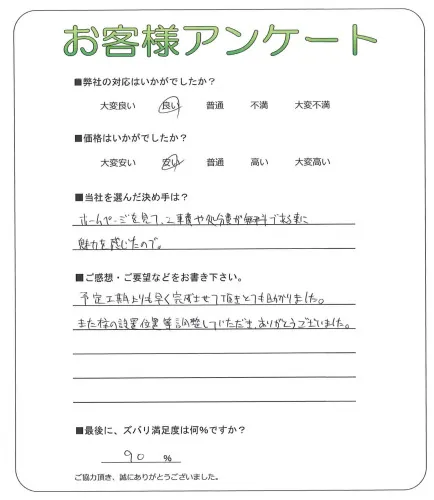 お客様アンケート
■弊社の対応はいかがでしたか？
大変良い 良い 普通 不満 大変不満
■価格はいかがでしたか？
大変安い 安い 普通 高い 大変高い
■当社を選んだ決め手は？
ホームページを見て、工事費や処分費が無料である事に
魅力を感じたので。
■ご感想・ご要望などをお書き下さい。
予定工期よりも早く完成させて頂きとても助かりました。
また様の設置位置等調整していただき、ありがとうございました。
■最後に、ズバリ満足度は何%ですか？
90 %
ご協力頂き、誠にありがとうございました。